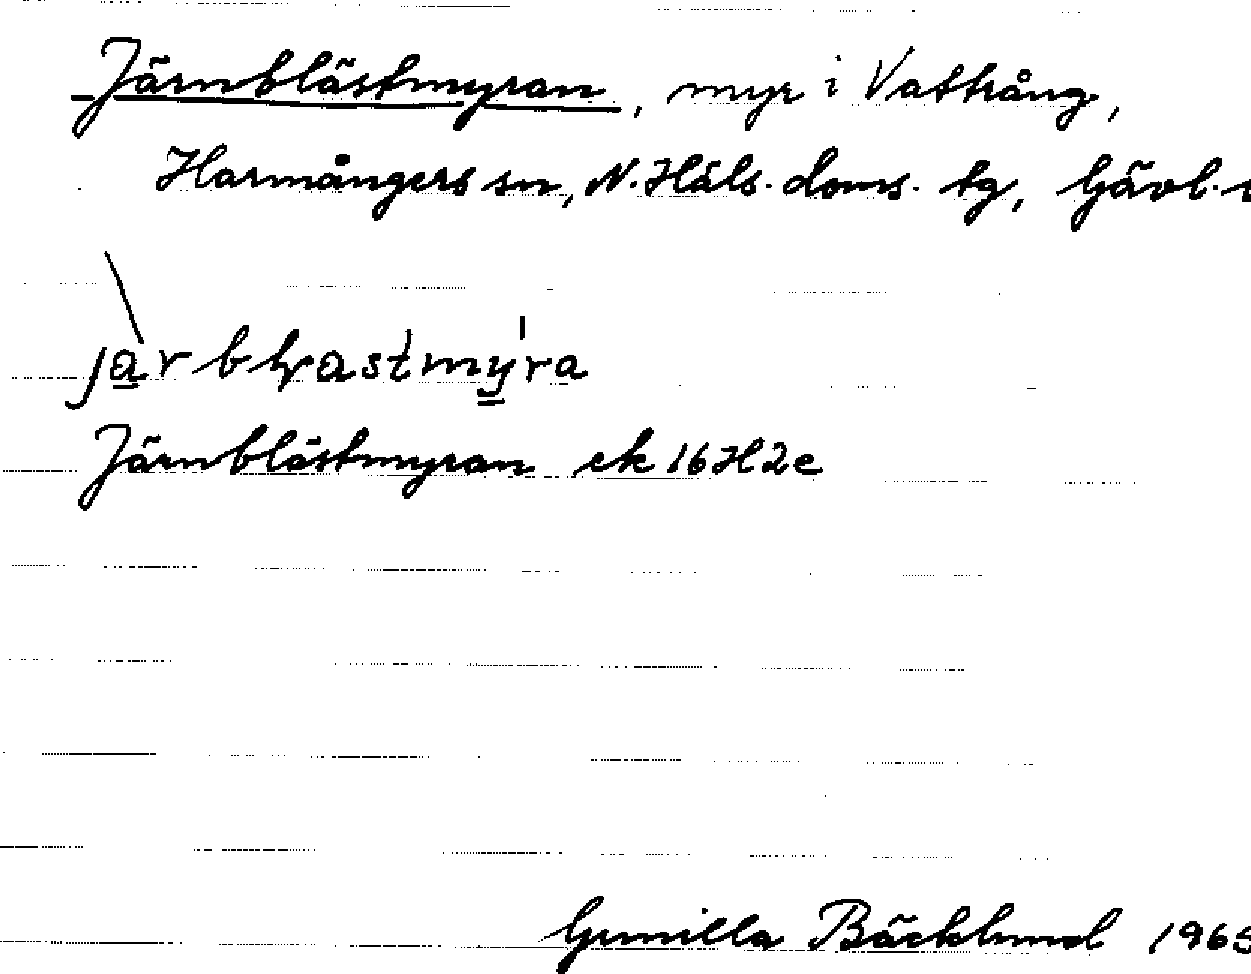 Järnblästmyran, myr i Vattrång,
Harmångers sn, N. Häls. doms. tg, Gävl.
Järnblästmyran ek 16H2e
Gunilla Bäcklund 1965